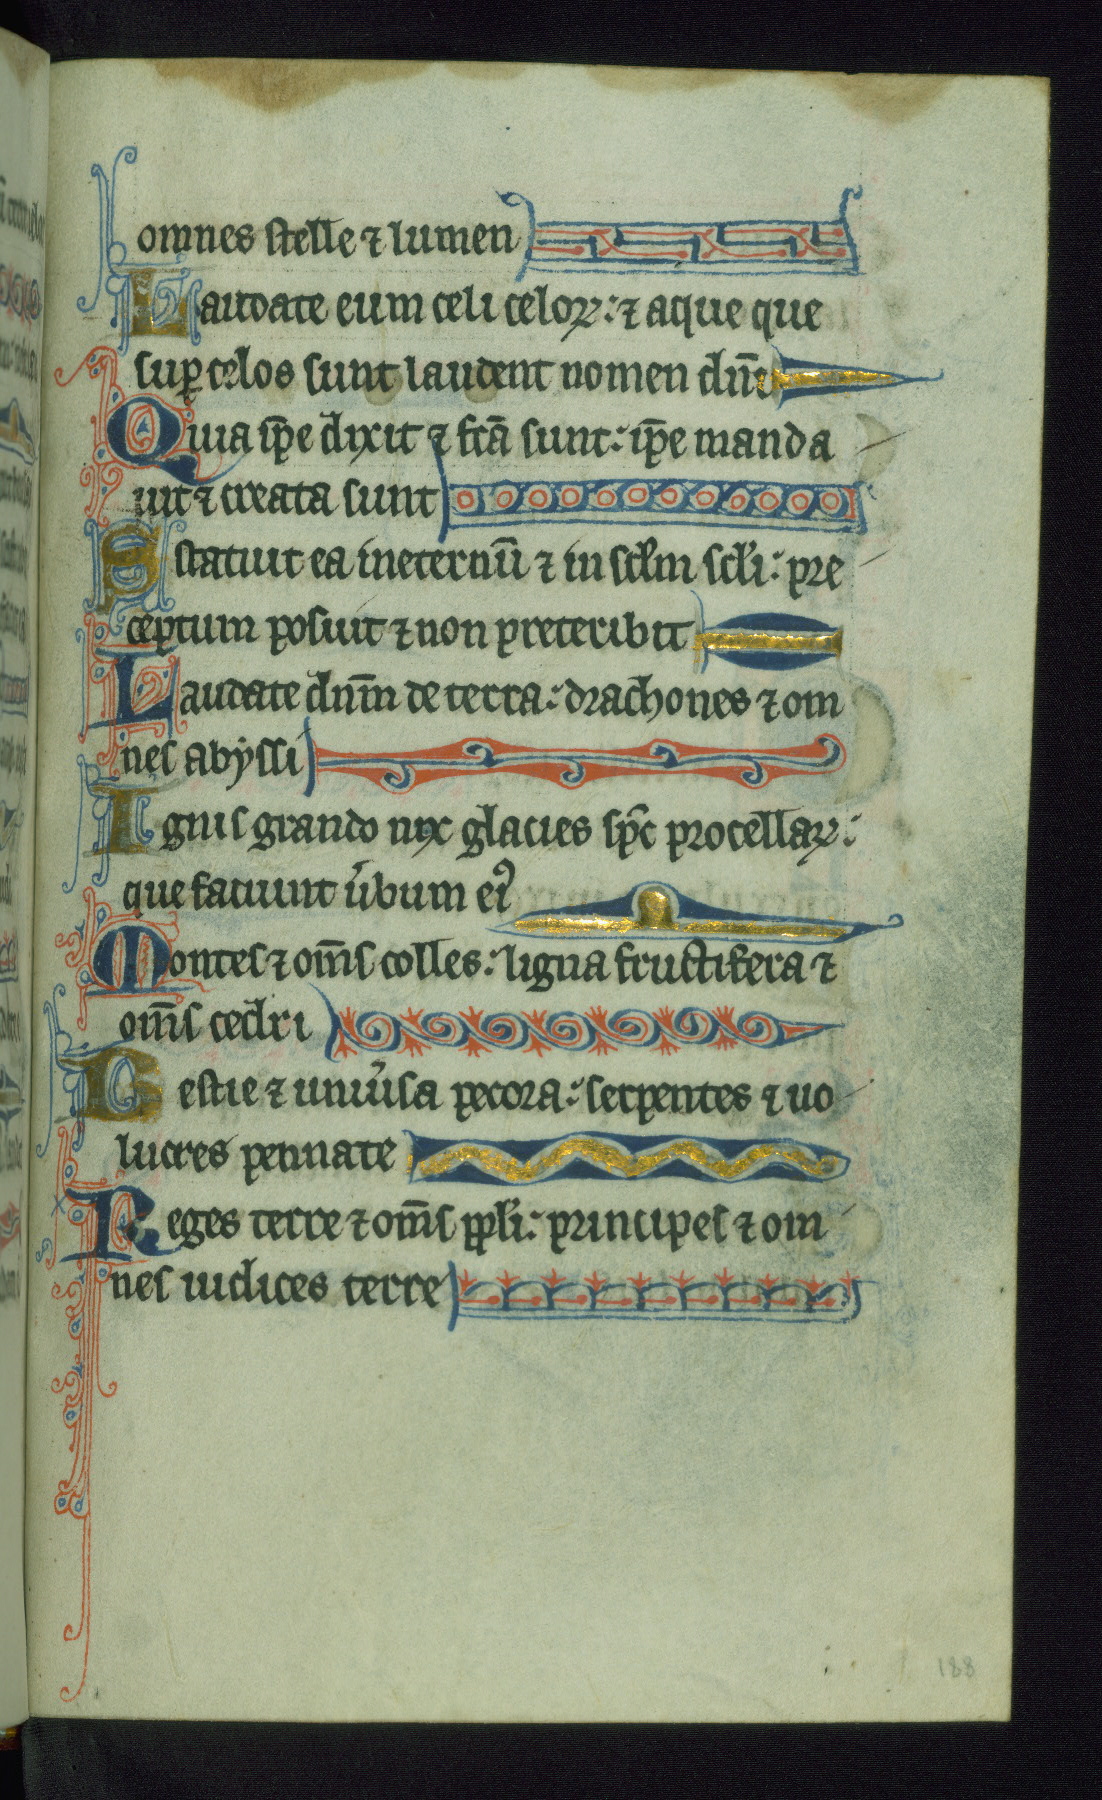 omnes stelle ⁊ lumen
Laudate eum celi celoꝝ: ⁊ aque que
suꝑ celos sunt laudent nomen dn̄i
Quia ip̄e dixit ⁊ fc̄a sunt: ip̄e manda
uit ⁊ creata sunt
Statuit ea ineternū ⁊ in scl̄m scl̄i: pre
ceptum posuit ⁊ non preteribit
Laudate dn̄m de terra: drachones ⁊ om
nes abyssi
Ignis grando nix glacies sp̄c procellaꝝ:
que faciunt u̾bum ei᾽
Montes ⁊ om̄s colles: ligna fructifera ⁊
om̄s cedri
Bestie ⁊ uniu̾sa pecora: serpentes ⁊ uo
lucres pennate
Reges terre ⁊ om̄s ppl̄i: principes ⁊ om
nes iudices terre
188